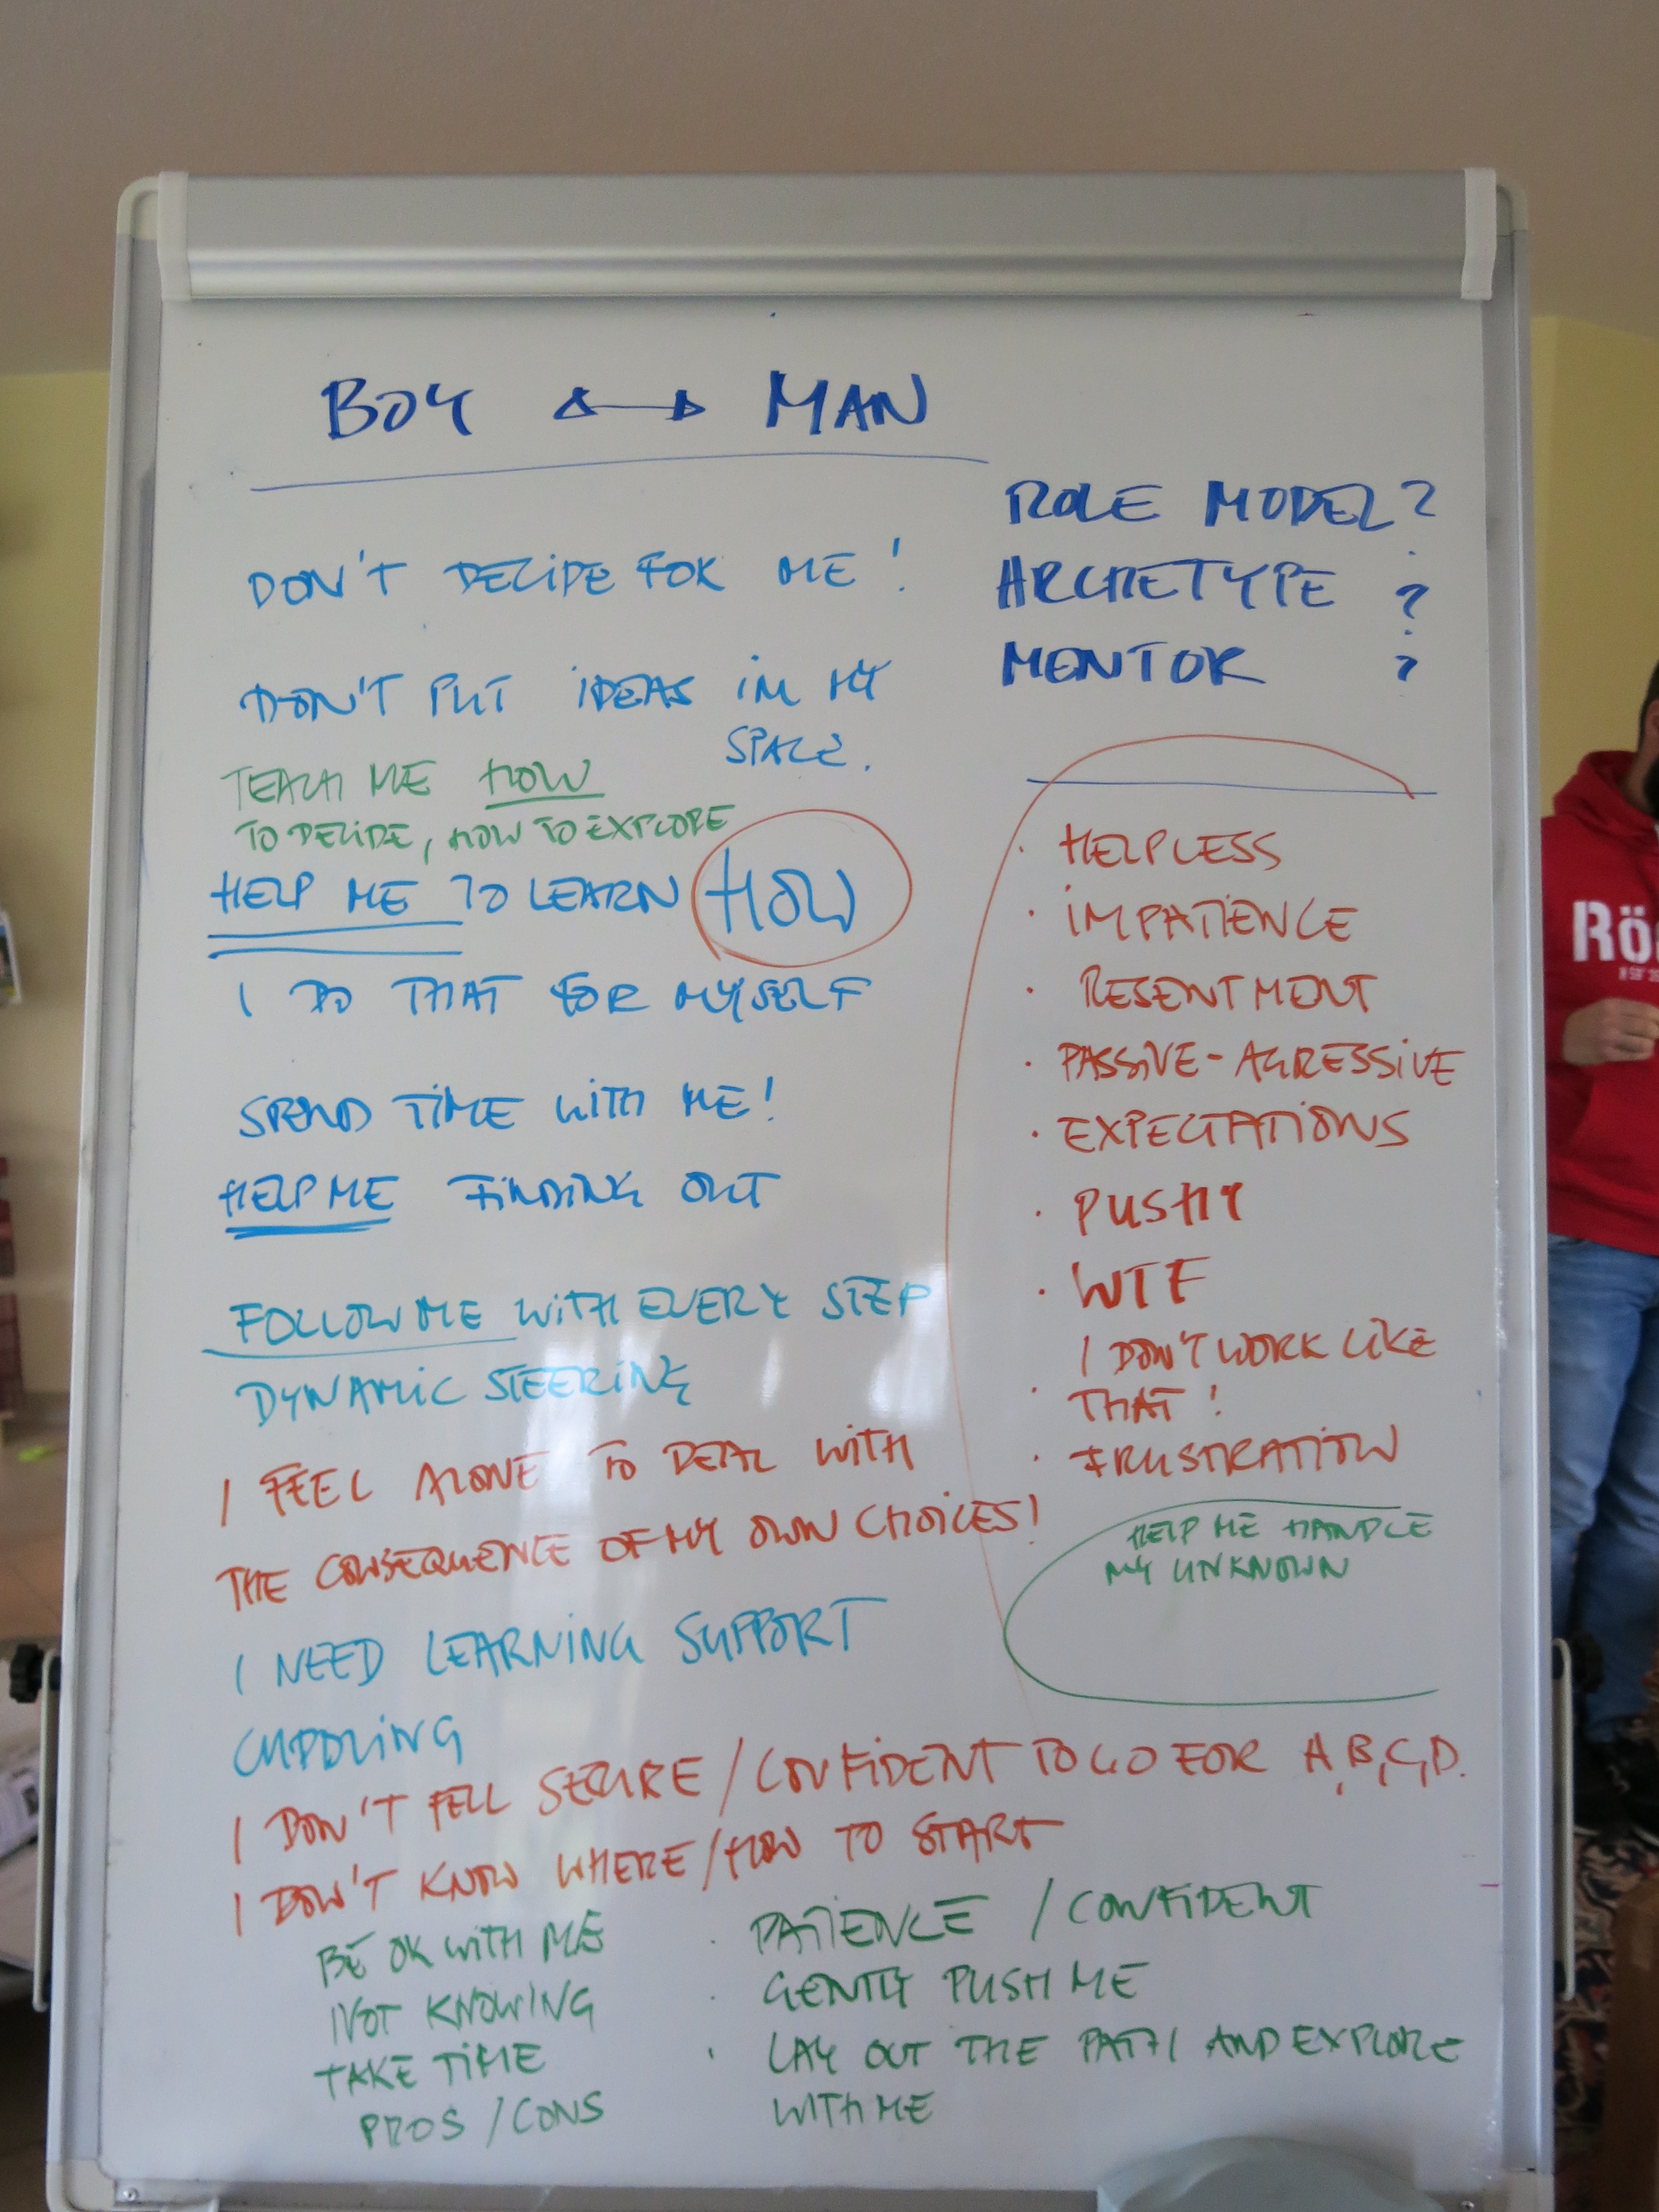 BOY ↔ MAN
ROLE MODEL?
ARCHETYPE ?
MENTOR ?
DON'T DECIDE FOR ME!
DON'T PUT IDEAS IN MY
SPACE.
TEACH ME HOW
TO DECIDE, HOW TO EXPLORE
HELP ME TO LEARN HOW
I DO THAT FOR MYSELF
SPEND TIME WITH ME!
HELP ME FINDING OUT
FOLLOW ME WITH EVERY STEP
DYNAMIC STEERING
I FEEL ALONE TO DEAL WITH
THE CONSEQUENCE OF MY OWN CHOICES!
I NEED LEARNING SUPPORT
CUDDLING
· HELPLESS
· IMPATIENCE
· RESENTMENT
· PASSIVE-AGRESSIVE
· EXPECTATIONS
· PUSHY
· WTF
· I DON'T WORK LIKE
THAT!
· FRUSTRATION
HELP ME HANDLE
MY UNKNOWN
I DON'T FELL SECURE/CONFIDENT TO GO FOR A,B,C,D.
I DON'T KNOW WHERE/HOW TO START
BE OK WITH ME
NOT KNOWING
TAKE TIME
PROS/CONS
· PATIENCE / CONFIDENT
· GENTLY PUSH ME
· LAY OUT THE PATH AND EXPLORE
WITH ME
Rö